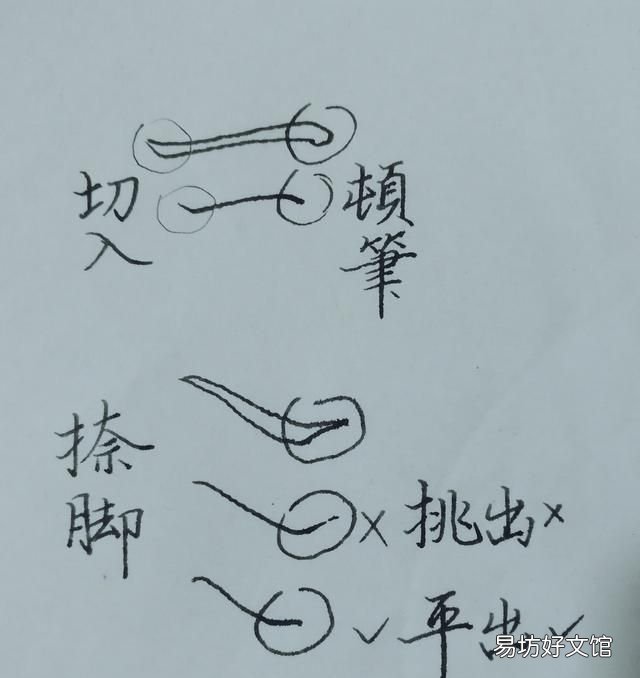 切入
頓筆
捺脚
× 挑出 ×
✓ 平出 ✓
易坊好文馆